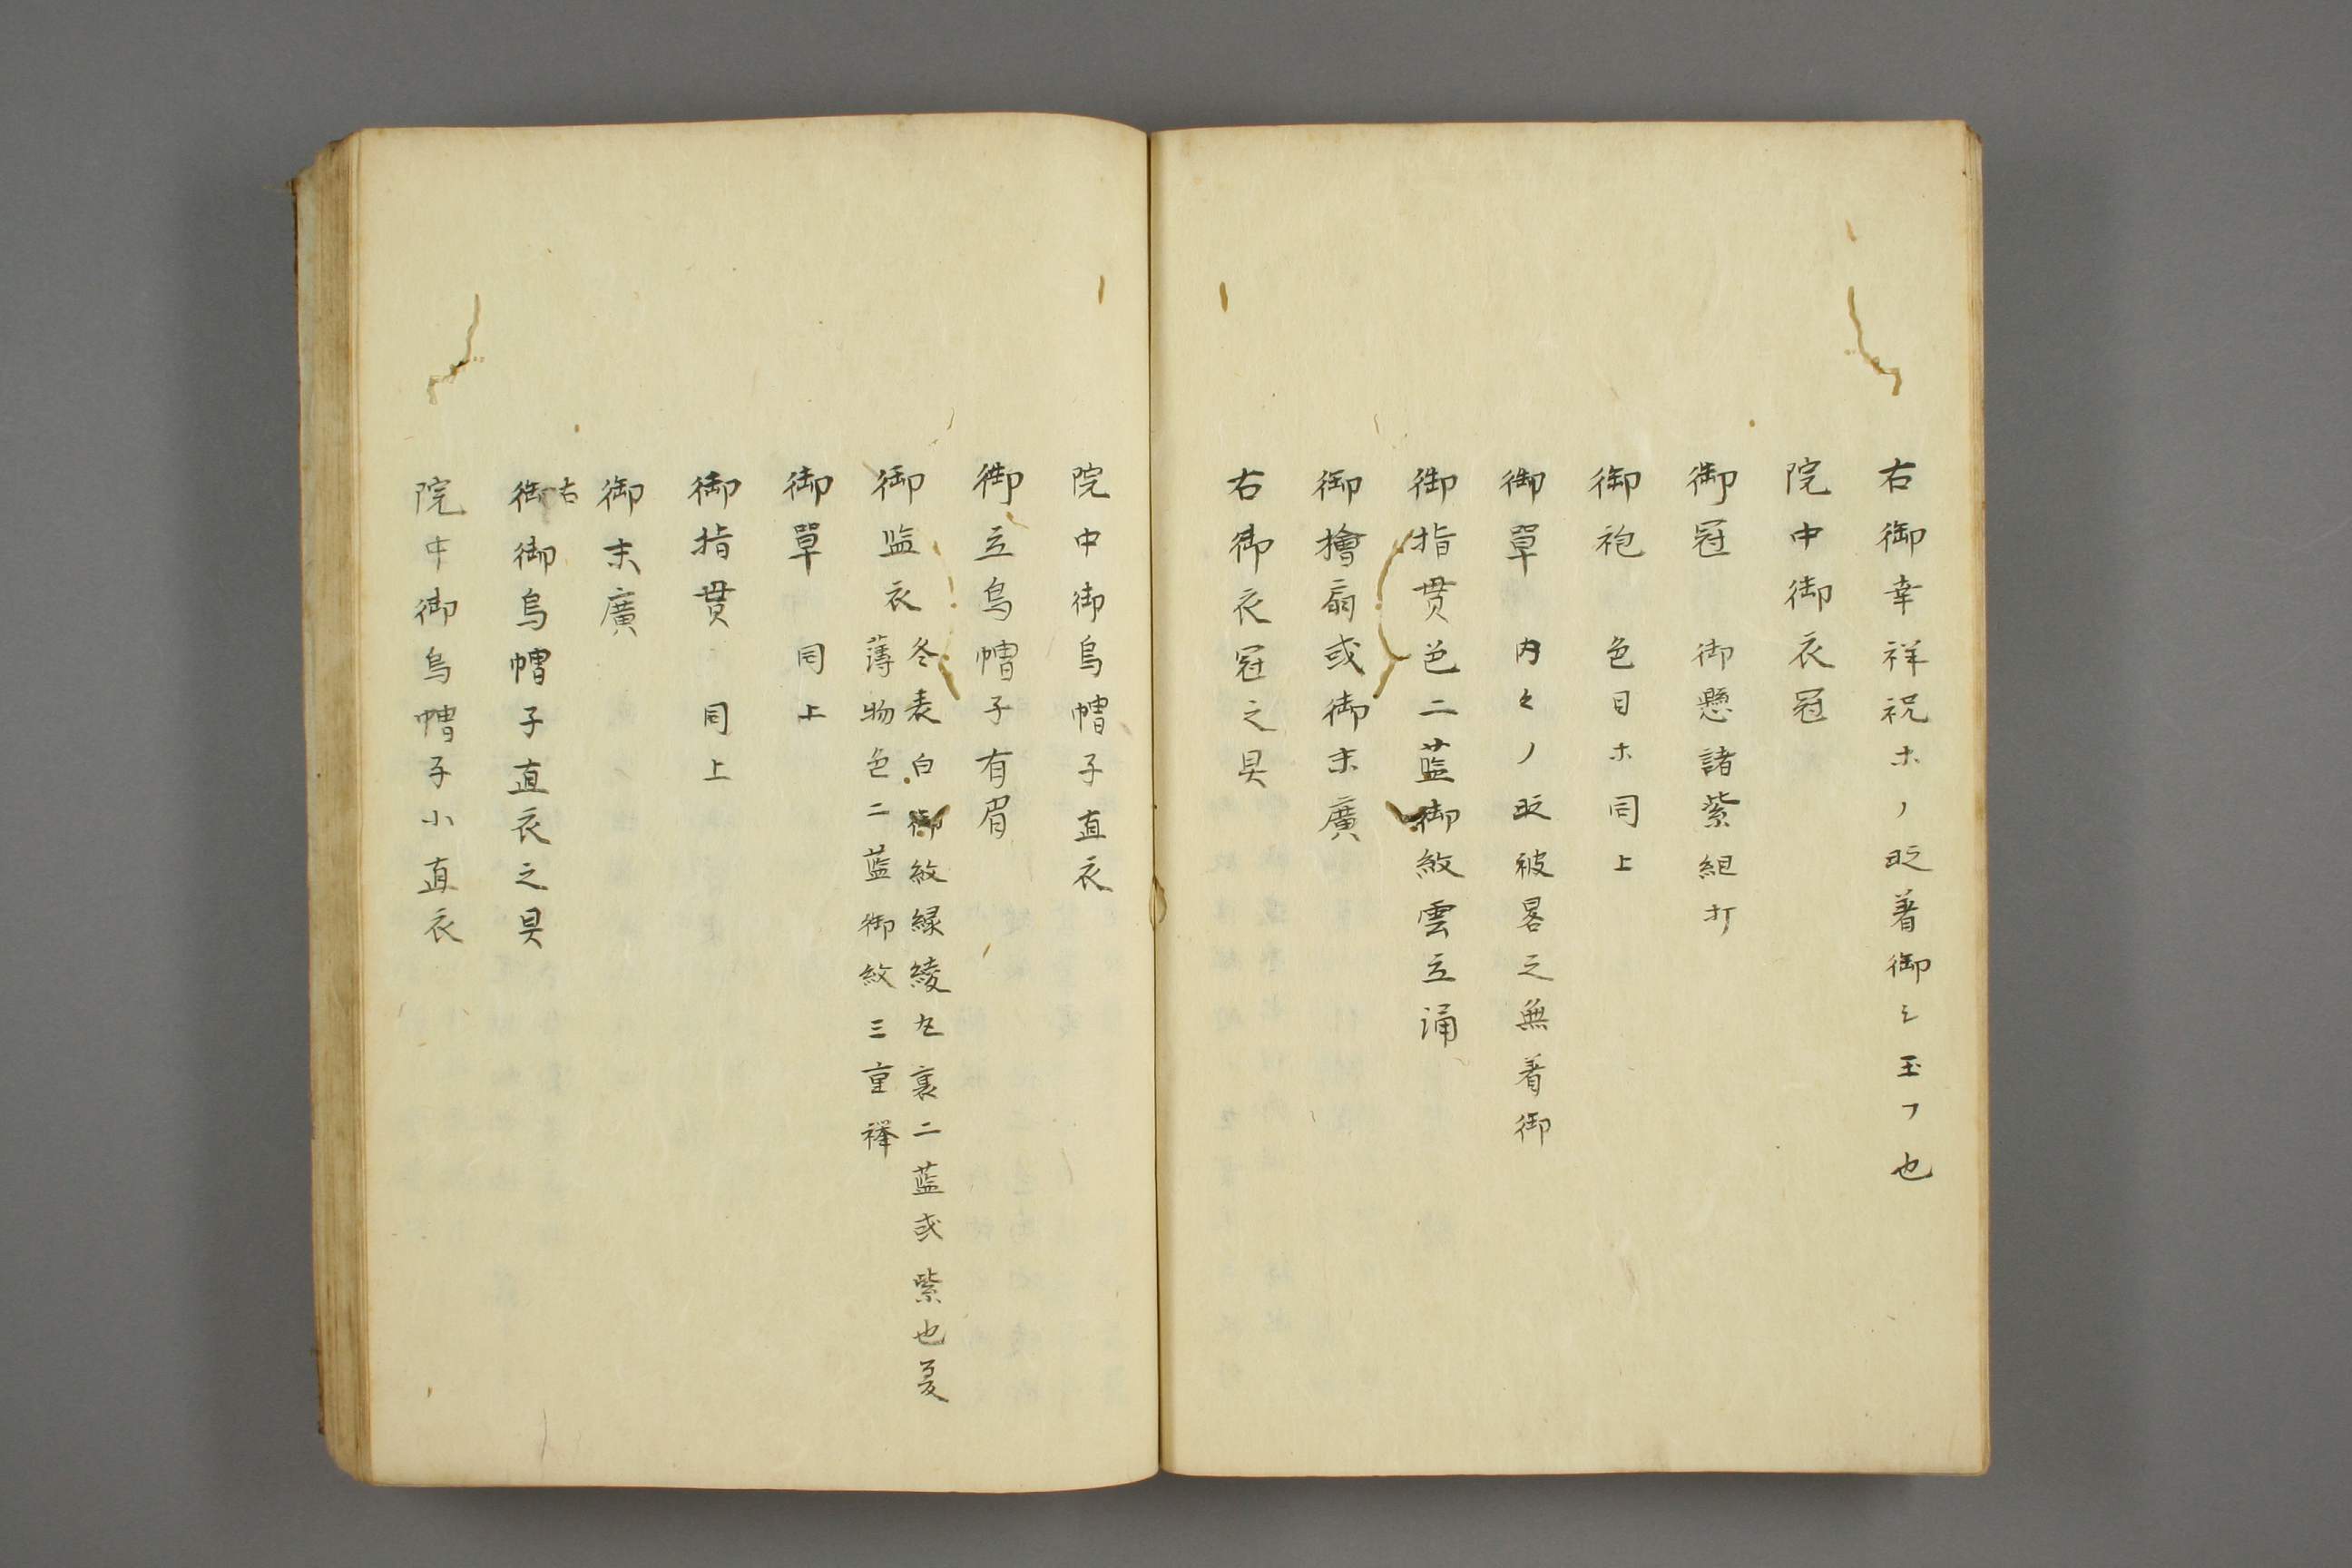 右御幸祥祝ホノ時着御シ玉フ也
院中御衣冠
御冠　御懸諸紫組打
御袍　色目ホ同上
御單　内々ノ時被畧之無着御
御指貫色二藍御紋雲立涌
御檜扇或御末廣
右御衣冠之具
院中御烏帽子直衣
御立烏帽子有眉
御直衣冬表白御紋緑綾丸裏二藍或紫也夏
薄物色二藍御紋三重襷
御單　同上
御指貫　同上
御末廣
右御烏帽子直衣之具
院中御烏帽子小直衣